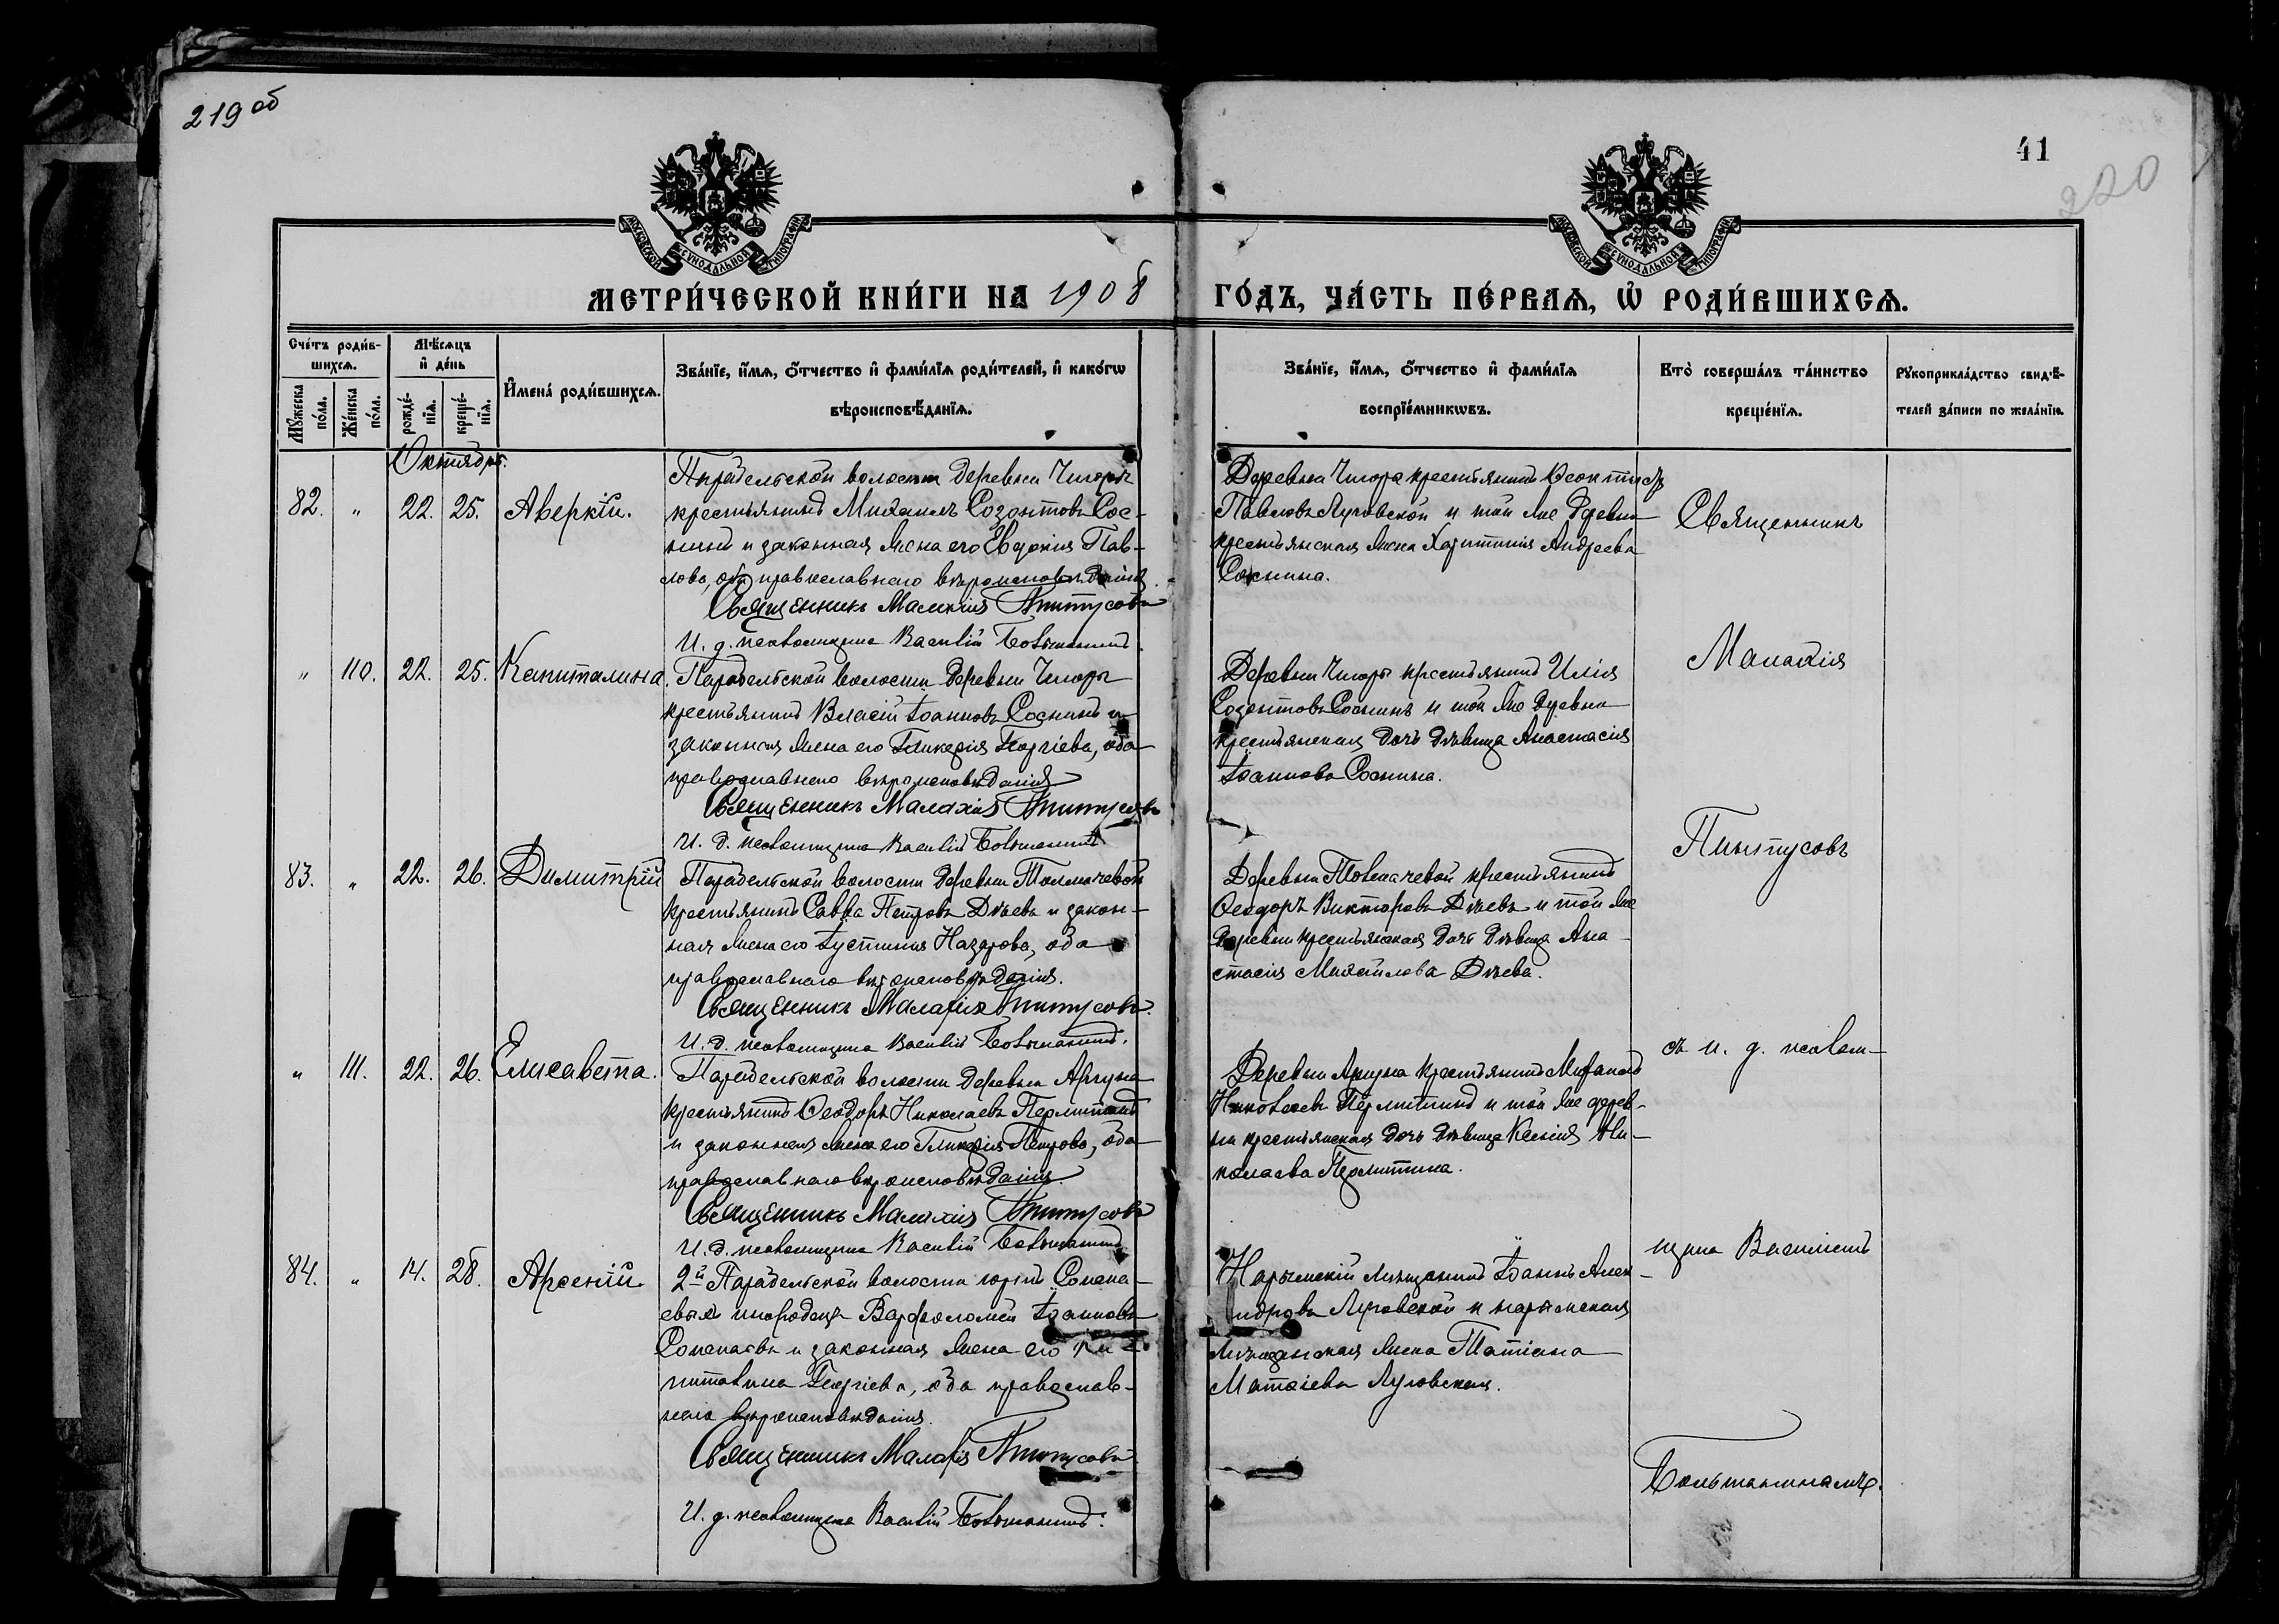 219 об
41
220
МОСКОВСКОЙ СѴНОДАЛЬНОЙ ТИПОГРАФІИ
МОСКОВСКОЙ СѴНОДАЛЬНОЙ ТИПОГРАФІИ
МЕТРИ́ЧЕСКОЙ КНИ́ГИ НА 1908
ГО́ДЪ, ЧА́СТЬ ПЕ́РВАѦ, Ѿ РОДИ́ВШИХСѦ.
Сче́тъ роди́в-
шихсѧ.
Мꙋжеска по́ла.
Же́нска по́ла.
Мѣ́сѧцъ
и҆ де́нь
рожде́-
нїѧ.
креще́-
нїѧ.
И҆мена̀ роди́вшихсѧ.
Зва́нїе, и҆́мѧ, ѻ҆́тчество и҆ фами́лїѧ роди́телей, и҆ како́гѡ
вѣроисповѣ́данїѧ.
Зва́нїе, и҆́мѧ, ѻ҆́тчество и҆ фами́лїѧ
воспрїе́мникѡвъ.
Кто̀ соверша́лъ та́инство
креще́нїѧ.
Рꙋкоприкла́дство свидѣ́-
телей за́писи по жела́нїю.
Октябрь.
82. " 22. 25. Аверкій.
Парабельской волости деревни Чигоры
крестьянинъ Михаилъ Созонтовъ Сос-
нинъ и законная жена его Евдокія Пав-
лова, оба православнаго вѣроисповѣданія.
Священникъ Малахія Пинтусовъ
И. д. псаломщика Василій Большанинъ.
Деревни Чигоры крестьянинъ Ѳеоктистъ
Павловъ Луговской и той же деревни
крестьянская жена Харитинія Андреева
Соснина.
" 110. 22. 25. Капиталина.
Парабельской волости деревни Чигоры
крестьянинъ Власій Іоанновъ Соснинъ и
законная жена его Гликерія Георгіева, оба
православнаго вѣроисповѣданія
Священникъ Малахія Пинтусовъ
И. д. псаломщика Василій Большанинъ
Деревни Чигоры крестьянинъ Илія
Созонтовъ Соснинъ и той же деревни
крестьянская дочь дѣвица Анастасія
Іоаннова Соснина.
83. " 22. 26. Димитрій
Парабельской волости деревни Толмачевой
крестьянинъ Савва Петровъ Дѣевъ и закон-
ная жена его Іустинія Назарова, оба
православнаго вѣроисповѣданія.
Священникъ Малахія Пинтусовъ.
И. д. псаломщика Василій Большанинъ.
Деревни Толмачевой крестьянинъ
Ѳеодоръ Викторовъ Дѣевъ и той же
деревни крестьянская дочь дѣвица Ана-
стасія Михаилова Дѣева.
" 111. 22. 26. Елисавета.
Парабельской волости деревни Аргуна
крестьянинъ Ѳеодоръ Николаевъ Пермитинъ
и законная жена его Гликерія Петрова, оба
православнаго вѣроисповѣданія
Священникъ Малахія Пинтусовъ
И. д. псаломщика Василій Большанинъ.
Николаевъ Пермитинъ и той же дерев-
ни крестьянская дочь дѣвица Ксенія Ни-
колаева Пермитина.
84. " 14. 28. Арсеній
2й Парабельской волости юртъ Сопыча-
евыхъ инородецъ Варѳоломей Іоанновъ
и законная жена его Ка-
питалина Георгіева, оба православ-
наго вѣроисповѣданія.
Священникъ Малахія Пинтусовъ
И. д. псаломщика Василій Большанинъ.
Нарымскій мѣщанинъ Іоаннъ Алек-
андровъ Луговской и нарымская
мѣщанская жена Татіана
Матѳіева Луговская.
Священникъ
Малахія
Пинтусовъ
съ и. д. псалом-
щика Василіемъ
Большанинымъ.